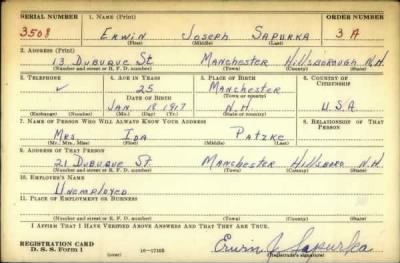 SERIAL NUMBER 1. NAME (Print) ORDER NUMBER
3508 ERWIN JOSEPH SAPURKA 3 A
(First) (Middle) (Last)
2. ADDRESS (Print)
13 DUBUQUE ST. MANCHESTER HILLSBOROUGH N.H.
(Number and street or R. F. D. number) (Town) (County) (State)
3. TELEPHONE 4. AGE IN YEARS 5. PLACE OF BIRTH 6. COUNTRY OF CITIZENSHIP
25 MANCHESTER
DATE OF BIRTH (Town or county)
JAN 18 1917 N.H. U.S.A
(Exchange) (Number) (Mo.) (Day) (Yr.) (State or country)
7. NAME OF PERSON WHO WILL ALWAYS KNOW YOUR ADDRESS 8. RELATIONSHIP OF THAT PERSON
MRS IDA PATZKE
(Mr., Mrs., Miss) (First) (Middle) (Last)
9. ADDRESS OF THAT PERSON
21 DUBUQUE ST. MANCHESTER HILLSBORO N.H.
(Number and street or R. F. D. number) (Town) (County) (State)
10. EMPLOYER'S NAME
UNEMPLOYED
11. PLACE OF EMPLOYMENT OR BUSINESS
(Number and street or R. F. D. number) (Town) (County) (State)
I AFFIRM THAT I HAVE VERIFIED ABOVE ANSWERS AND THAT THEY ARE TRUE.
REGISTRATION CARD
D. S. S. Form 1 (over) Erwin J. Sapurka
(Registrant's signature)